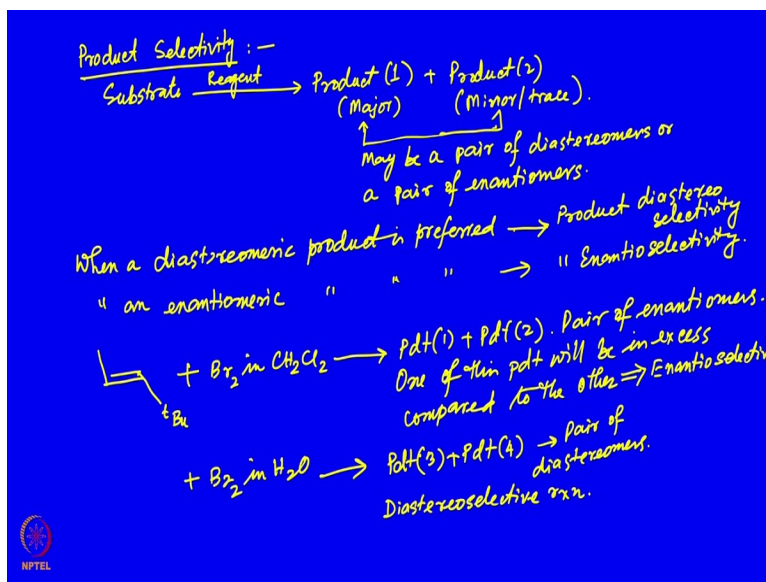 Product Selectivity :-
Substrate Reagent → Product(1) + Product(2)
(Major) (Minor/trace).
May be a pair of diastereomers or
a pair of enantiomers.
When a diastereomeric product is preferred → Product diastereo
selectivity
" an enantiomeric " " " → " Enantioselectivity.
+ Br2 in CH2Cl2 → Pdt(1) + Pdt(2). Pair of enantiomers.
One of this pdt will be in excess
compared to the other ⇒ Enantioselectiv
tBu
+ Br2 in H2O → Pdt(3)+Pdt(4) → Pair of
diastereomers.
Diastereoselective rxn.
NPTEL